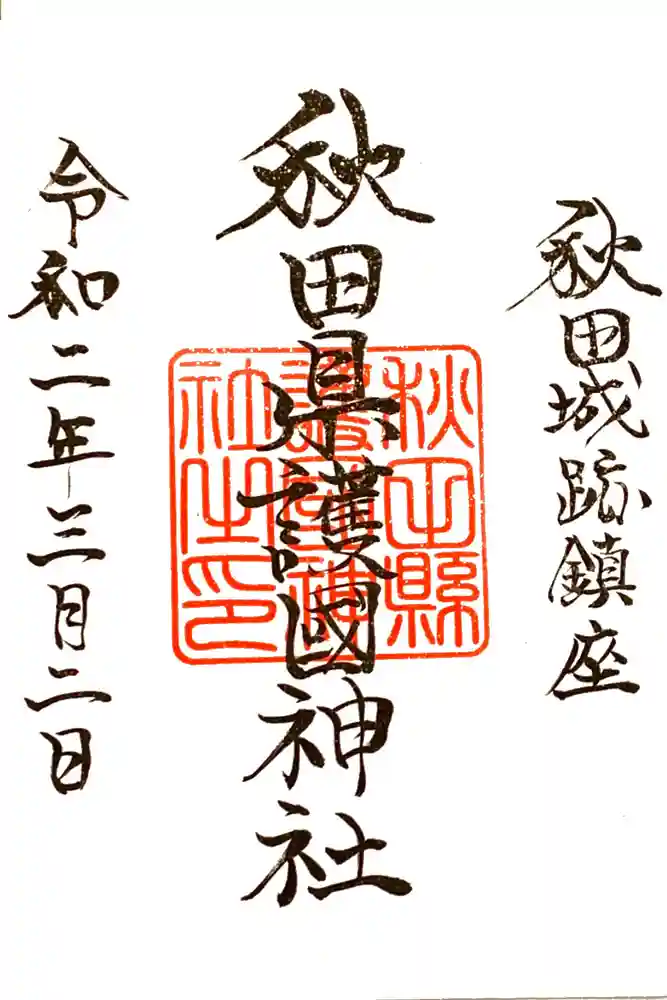 秋田城跡鎮座
秋田県護國神社
秋田縣
護國神
社之印
令和二年三月二日